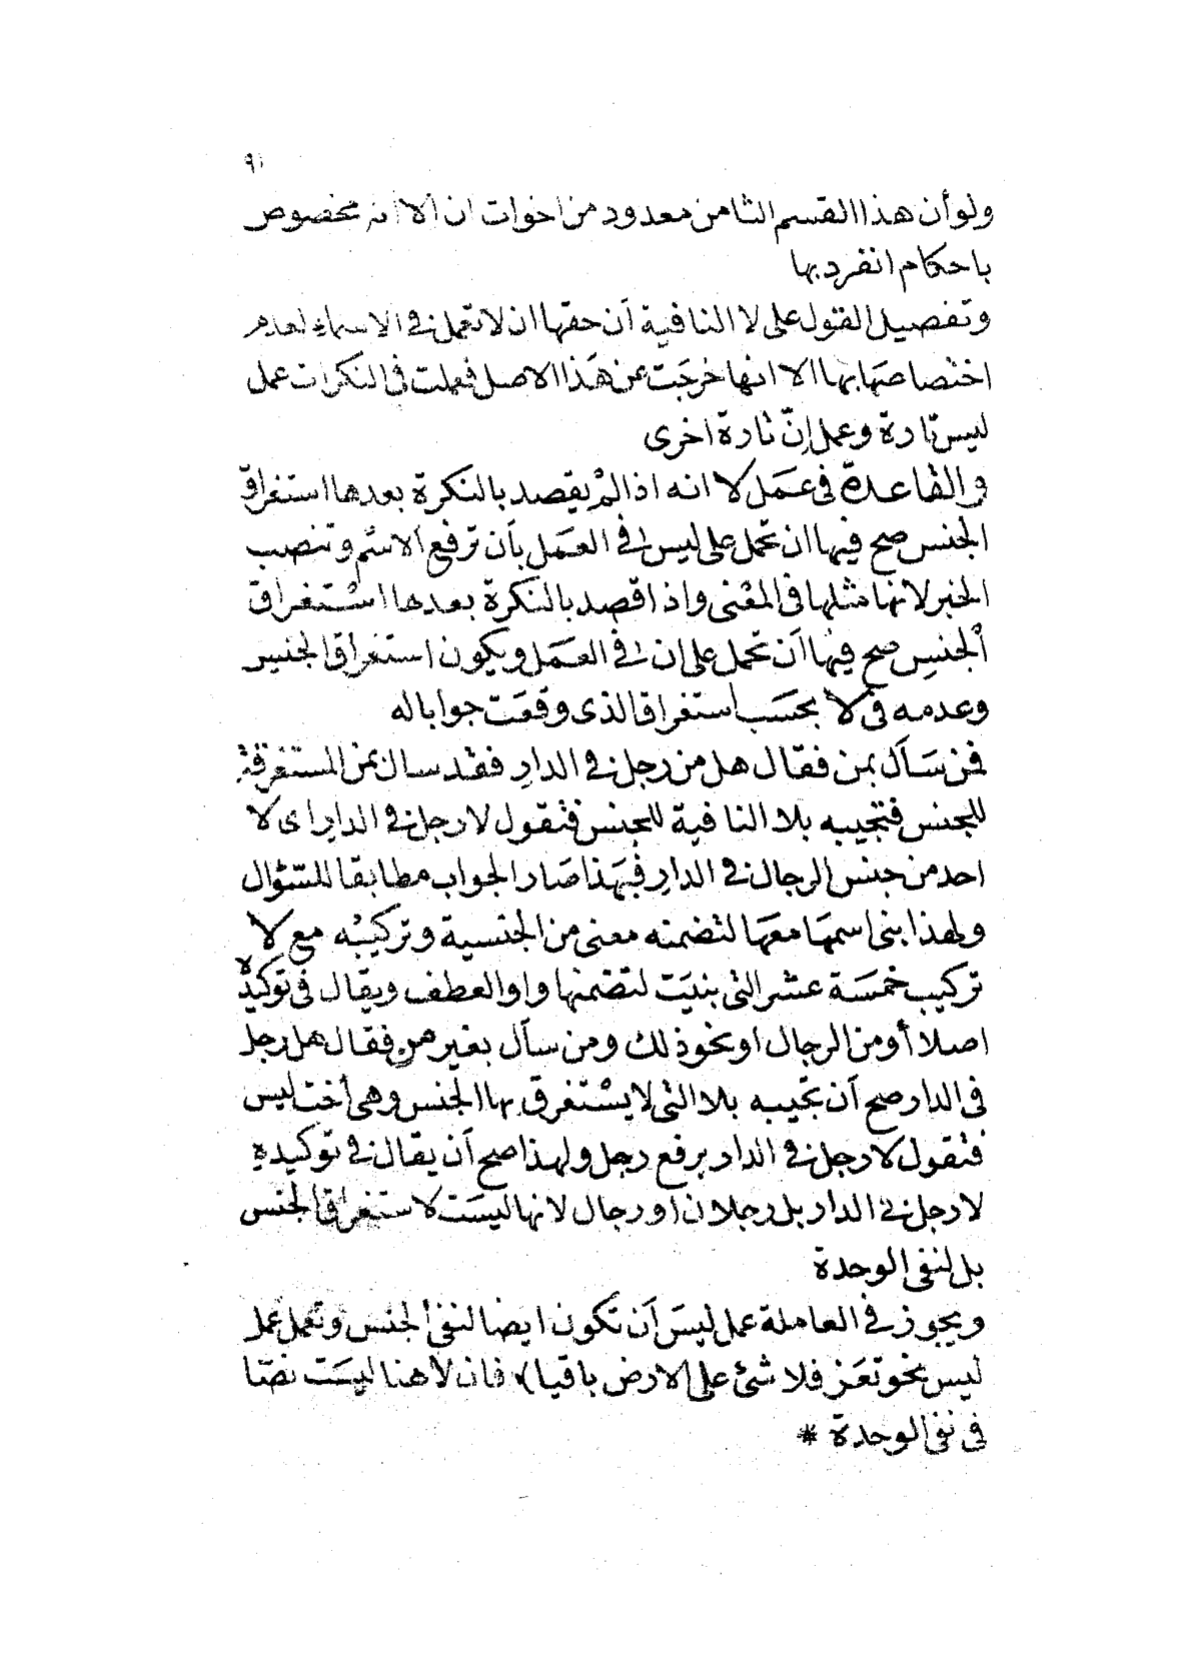 ٩١
ولوأن هذا القسم الثامن معدود من اخوات ان الا انه مخصوص
باحكام انفرد بها
وتفصيل القول على لا النافية أن حقها ان لا تعمل في الاسماء لعدم
اختصاصها بها الا انها خرجت عن هذا الاصل فعملت في النكرات عمل
ليس تارة وعمل إنّ تارة اخرى
والقاعدة في عمل لا انه اذا لمْ يقصد بالنكرة بعدها استغراق
الجنس صح فيها ان تحمل على ليس في العمل بأن ترفع الاسم وتنصب
الخبر لانها مثلها في المعْنى واذا قصد بالنكرة بعدها استْغراق
الجنسِ صح فيها أن تحمل على ان في العمل ويكون استغراق الجنس
وعدمه في لا بحسَب استغراق الذى وقعَت جوابا له
فمن سَأل بمن فقال هل من رجل في الدارِ فقد سال بمن المستغرقة
للجنس فتجيبه بلا النافية للجنس فتقول لا رجل في الدار اى لا
احد من جنس الرجال في الدارِ فبهَذا صَار الجواب مطابقا للسّؤال
ولهذا بنى اسمهَا معَها لتضمنه معنى من الجنسية وتركيبْه مع لا
تركيب خمسَة عشر التى بنيَت لتضمنها واو العطف ويقال في توكيده
اصلا أو من الرجال او نحو ذلك ومن سأل بغير من فقال هل رجل
في الدار صح أن تجيبه بلا التى لا يسْتغرق بها الجنس وهى أخت ليس
فتقول لا رجل في الدار برفع رجل ولهذا صح أن يقال في توكيدهِ
لا رجل في الدار بل رجلان او رجال لانها ليسَت لاستغراق الجنس
بل لنفى الوحدة
ويجوز في العاملة عمل ليسَ أن تكون ايضا لنفى الجنس وتعمل عمل
ليس نحو تعَز فلا شئ على الارض باقيا) فان لا هنا ليسَت نصّا
في نفى الوحدة *